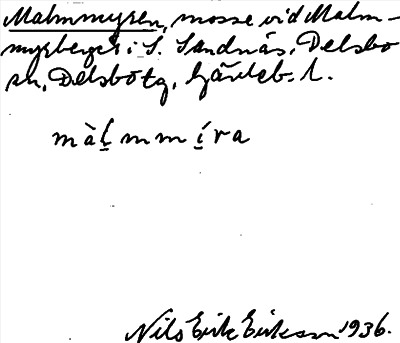 Malmmyren, mosse vid Malm-
myrberget i S. Sandnäs, Delsbo
sn, Delsbo tg, Gävleb. l.
màl̲mmí̲ra
Nils Erik Eriksson 1936.